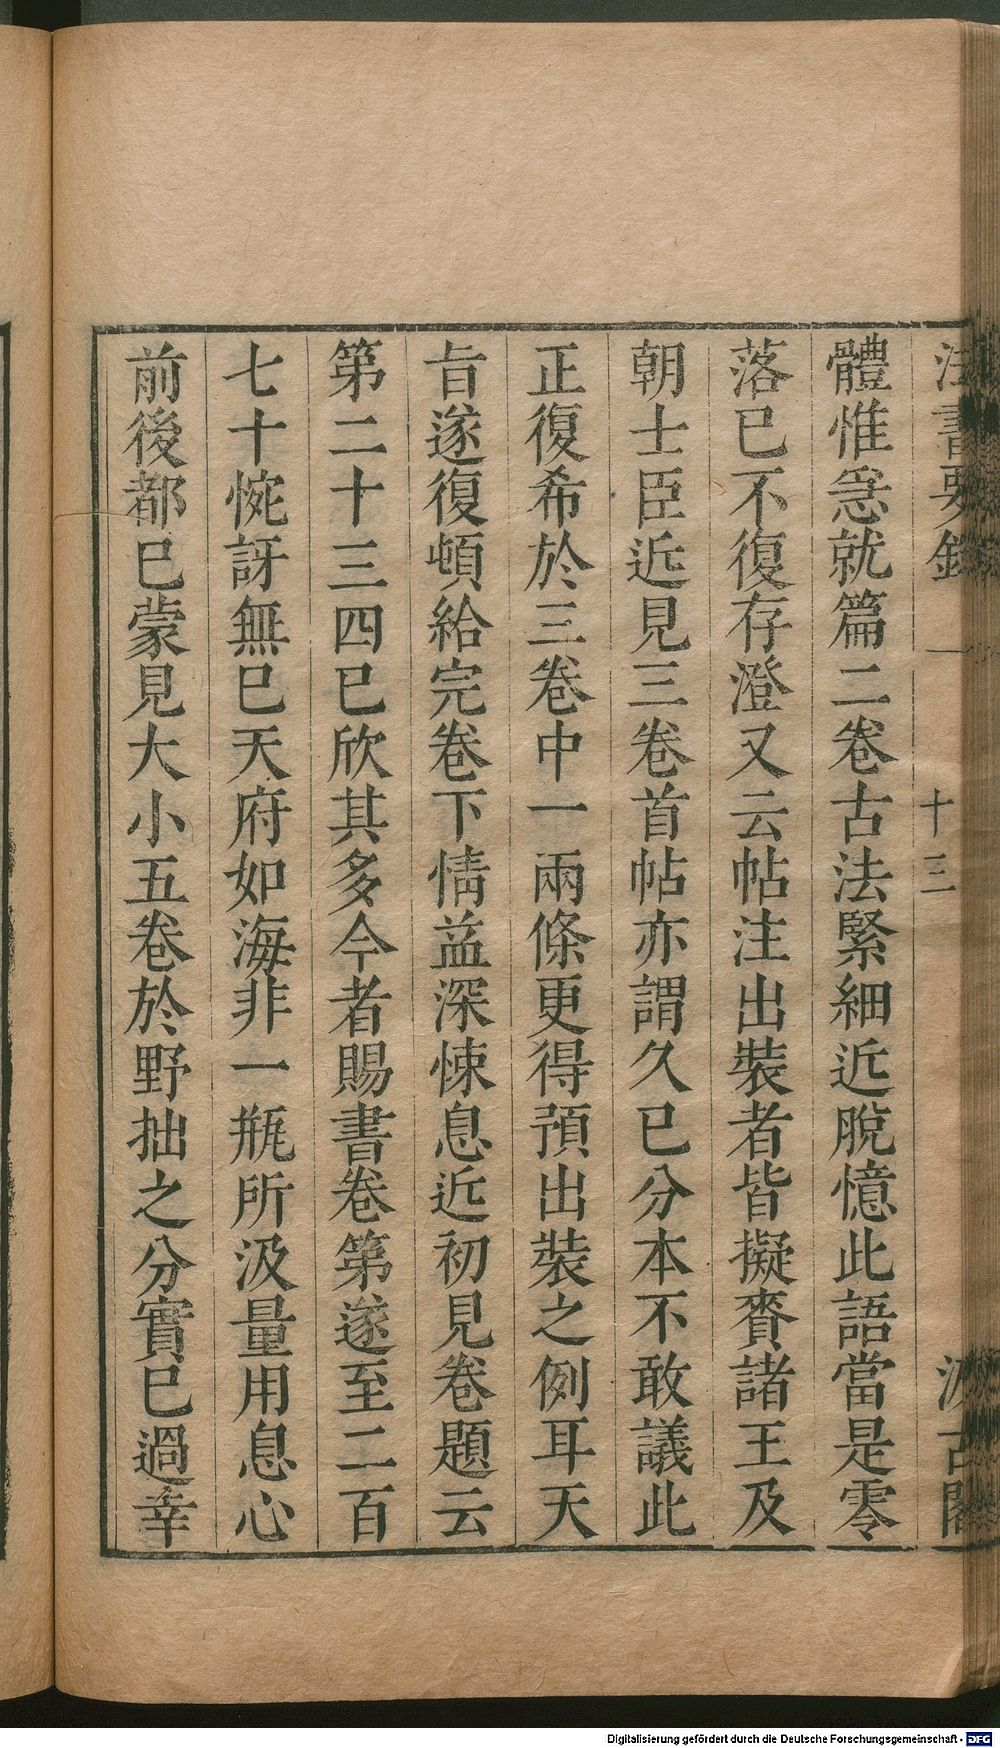 法書要錄 一 十三 汲古閣
體惟急就篇二卷古法緊細近脫憶此語當是零
落已不復存澄又云帖注出裝者皆擬賫諸王及
朝士臣近見三卷首帖亦謂久已分本不敢議此
正復希於三卷中一兩條更得預出裝之例耳天
旨遂復頓給完卷下情益深悚息近初見卷題云
第二十三四已欣其多今者賜書卷第遂至二百
七十惋訝無已天府如海非一瓶所汲量用息心
前後都已蒙見大小五卷於野拙之分實已過幸
Digitalisierung gefördert durch die Deutsche Forschungsgemeinschaft - DFG